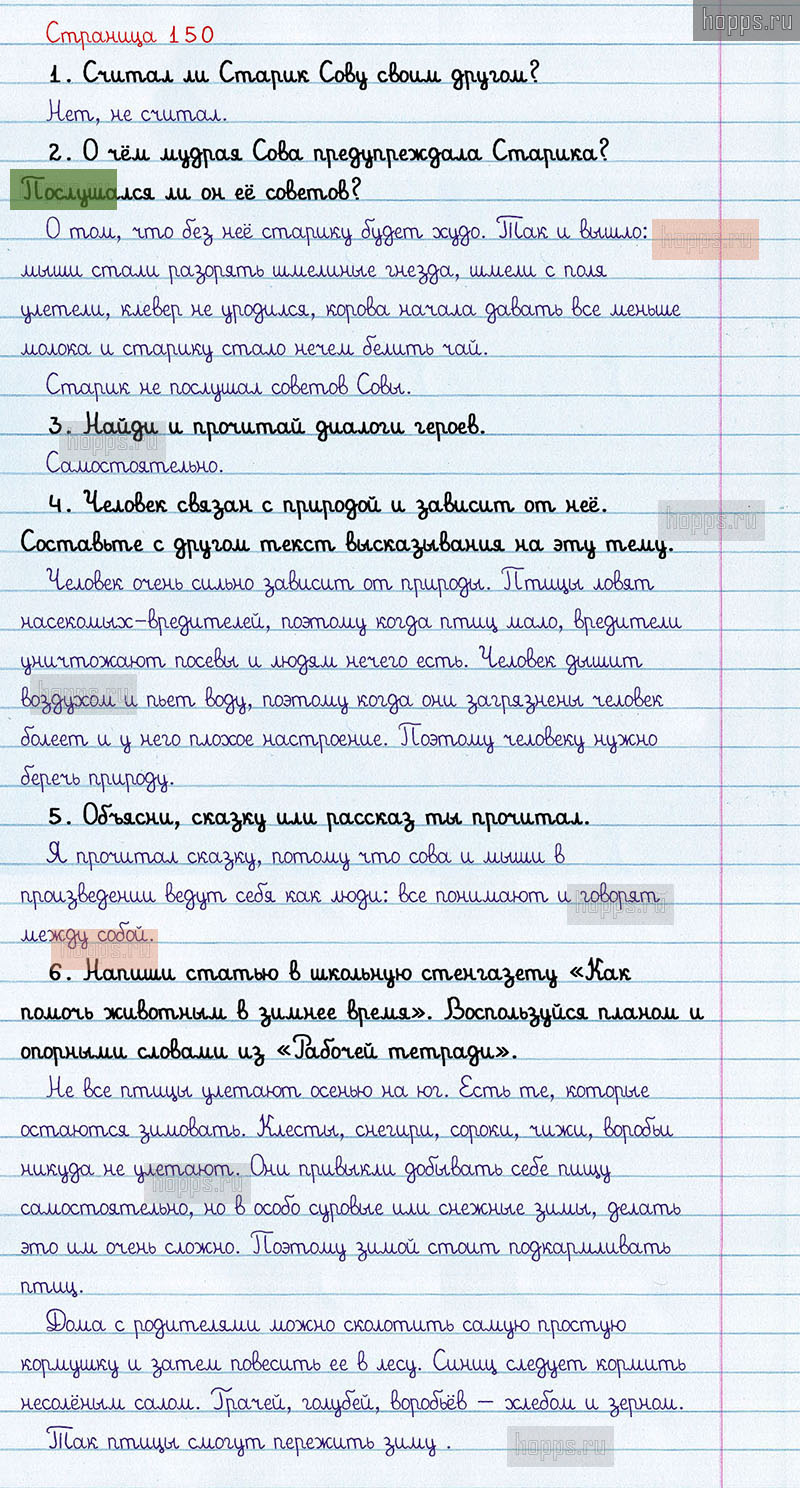 hopps.ru
Страница 150
1. Считал ли Старик Сову своим другом?
Нет, не считал.
2. О чём мудрая Сова предупреждала Старика?
Послушался ли он её советов?
О том, что без неё старику будет худо. Так и вышло:
hopps.ru
мыши стали разорять шмелиные гнезда, шмели с поля
улетели, клевер не уродился, корова начала давать все меньше
молока и старику стало нечем белить чай.
Старик не послушал советов Совы.
3. Найди и прочитай диалоги героев.
hopps.ru
Самостоятельно.
4. Человек связан с природой и зависит от неё.
hopps.ru
Составьте с другом текст высказывания на эту тему.
Человек очень сильно зависит от природы. Птицы ловят
насекомых-вредителей, поэтому когда птиц мало, вредители
уничтожают посевы и людям нечего есть. Человек дышит
воздухом и пьет воду, поэтому когда они загрязнены человек
hopps.ru
болеет и у него плохое настроение. Поэтому человеку нужно
беречь природу.
5. Объясни, сказку или рассказ ты прочитал.
Я прочитал сказку, потому что сова и мыши в
произведении ведут себя как люди: все понимают и говорят
hopps.ru
между собой.
hopps.ru
6. Напиши статью в школьную стенгазету «Как
помочь животным в зимнее время». Воспользуйся планом и
опорными словами из «Рабочей тетради».
Не все птицы улетают осенью на юг. Есть те, которые
остаются зимовать. Клесты, снегири, сороки, чижи, воробьи
никуда не улетают. Они привыкли добывать себе пищу
hopps.ru
самостоятельно, но в особо суровые или снежные зимы, делать
это им очень сложно. Поэтому зимой стоит подкармливать
птиц.
Дома с родителями можно сколотить самую простую
кормушку и затем повесить ее в лесу. Синиц следует кормить
несолёным салом. Грачей, голубей, воробьёв – хлебом и зерном.
Так птицы смогут пережить зиму .
hopps.ru